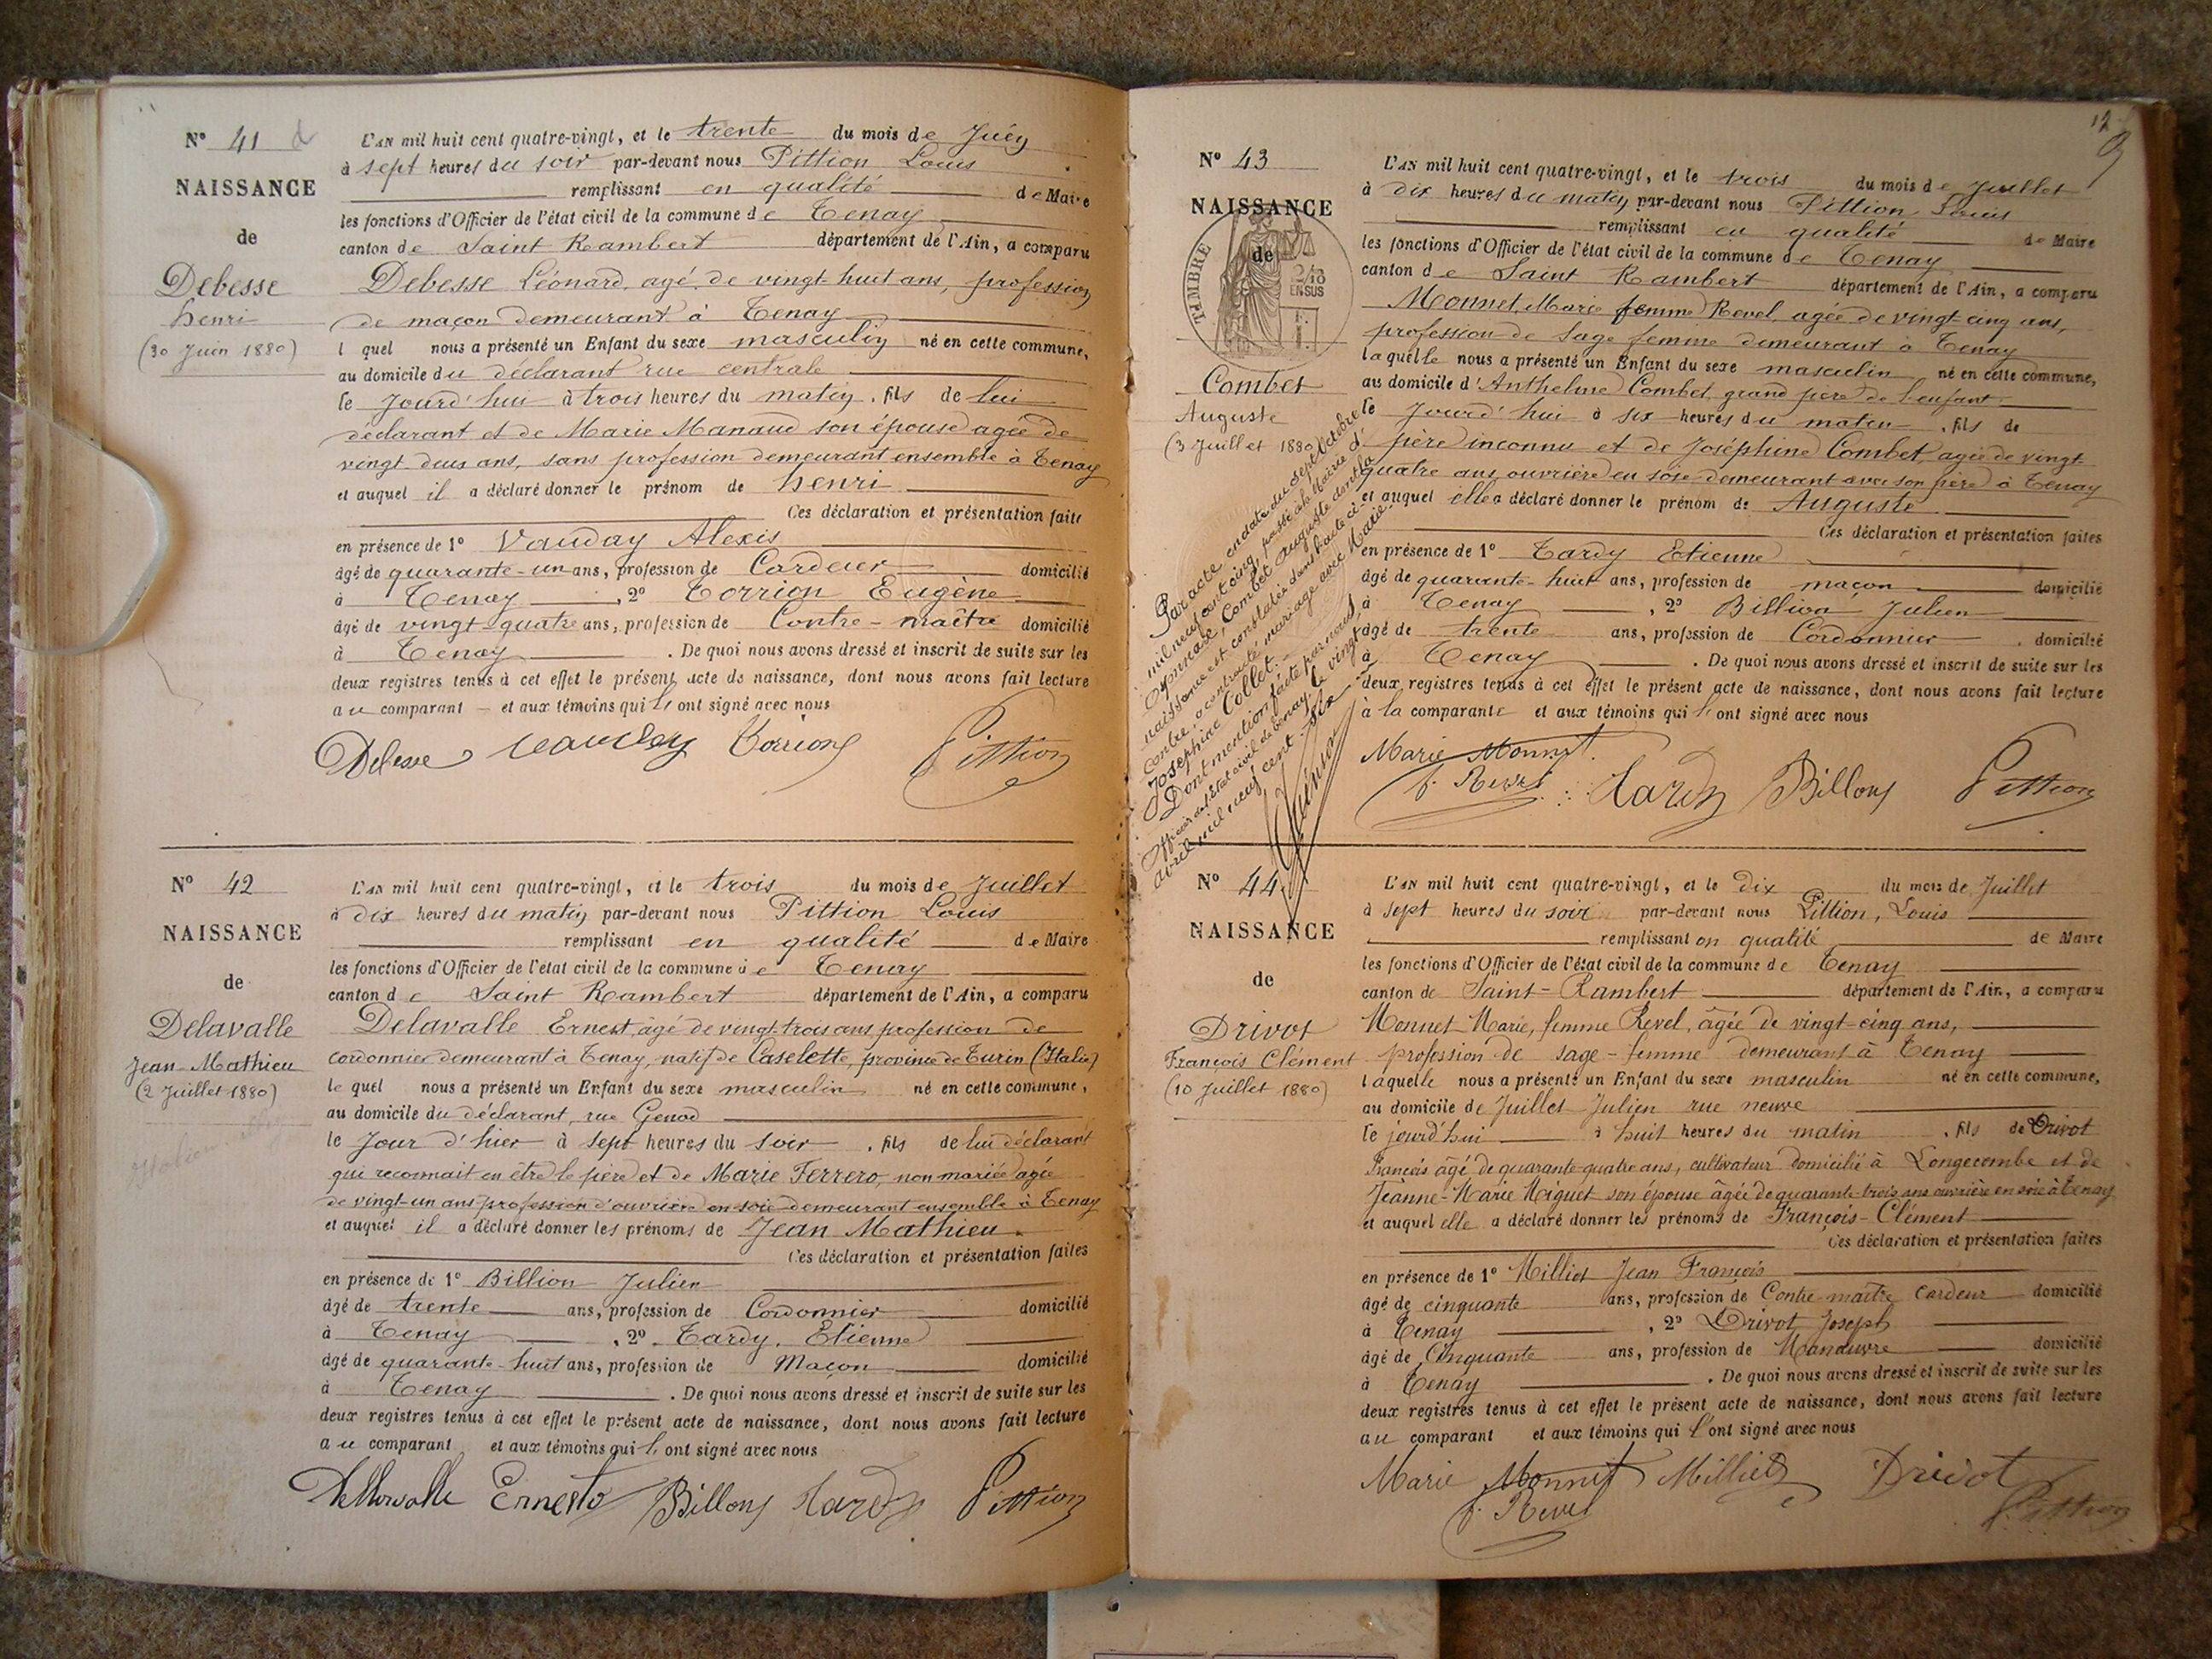 N° 41
NAISSANCE
de
Debesse
henri
(30 Juin 1880)
L'AN mil huit cent quatre-vingt, et le trente du mois de Juin
à sept heures du soir par-devant nous Pittion Louis
remplissant en qualité de Maire
les fonctions d'Officier de l'état civil de la commune de Tenay
canton de Saint Rambert département de l'Ain, a comparu
Debesse Léonard, agé de vingt-huit ans, profession
de maçon demeurant à Tenay
l quel nous a présenté un Enfant du sexe masculin né en cette commune,
au domicile du déclarant rue centrale
le Jourd'hui à trois heures du matin, fils de lui
déclarant et de Marie Manaud son épouse agée de
vingt deus ans, sans profession demeurant ensemble à Tenay
et auquel il a déclaré donner le prénom de henri
Ces déclaration et présentation faite
en présence de 1° Vauday Alexis
âgé de quarante-un ans, profession de Cardeur domicilié
à Tenay, 2° Torrion Eugène
âgé de vingt-quatre ans, profession de Contre-maître domicilié
à Tenay. De quoi nous avons dressé et inscrit de suite sur les
deux registres tenus à cet effet le présent acte de naissance, dont nous avons fait lecture
au comparant et aux témoins qui l'ont signé avec nous
Debesse Vauday Torrion Pittion
N° 42
NAISSANCE
de
Delavalle
Jean-Mathieu
(2 Juillet 1880)
L'AN mil huit cent quatre-vingt, et le trois du mois de Juillet
à dix heures du matin par-devant nous Pittion Louis
remplissant en qualité de Maire
les fonctions d'Officier de l'état civil de la commune de Tenay
canton de Saint Rambert département de l'Ain, a comparu
Delavalle Ernest, âgé de vingt-trois ans profession de
cordonnier demeurant à Tenay, natif de Caselette, province de Turin (Italie)
le quel nous a présenté un Enfant du sexe masculin né en cette commune,
au domicile du déclarant, rue Genod
le Jour d'hier à sept heures du soir, fils de lui déclarant
qui reconnait en être le père et de Marie Ferrero, non mariée agée
de vingt-un ans profession d'ouvrière en soie demeurant ensemble à Tenay
et auquel il a déclaré donner les prénoms de Jean Mathieu.
Ces déclaration et présentation faites
en présence de 1° Billion Julien
âgé de trente ans, profession de Cordonnier domicilié
à Tenay, 2° Tardy, Etienne
âgé de quarante-huit ans, profession de Maçon domicilié
à Tenay. De quoi nous avons dressé et inscrit de suite sur les
deux registres tenus à cet effet le présent acte de naissance, dont nous avons fait lecture
au comparant et aux témoins qui l'ont signé avec nous
Dellavalle Ernesto Billion Tardy Pittion
12
N° 43
NAISSANCE
de
TIMBRE
2/10
EN SUS
Combet
Auguste
(3 Juillet 1880)
L'AN mil huit cent quatre-vingt, et le trois du mois de Juillet
à dix heures du matin par-devant nous Pittion Louis
remplissant en qualité de Maire
les fonctions d'Officier de l'état civil de la commune de Tenay
canton de Saint Rambert département de l'Ain, a comparu
Monnet, Marie femme Revel, agée de vingt-cinq ans,
profession de Sage femme demeurant à Tenay
laquelle nous a présenté un Enfant du sexe masculin né en cette commune,
au domicile d'Anthelme Combet, grand père de l'enfant
le Jourd'hui à six heures du matin, fils de
père inconnu et de Joséphine Combet, agée de vingt
quatre ans, ouvrière en soie demeurant avec son père à Tenay
et auquel elle a déclaré donner le prénom de Auguste
Ces déclaration et présentation faites
en présence de 1° Tardy Etienne
âgé de quarante-huit ans, profession de maçon domicilié
à Tenay, 2° Billion Julien
âgé de trente ans, profession de Cordonnier, domicilié
à Tenay. De quoi nous avons dressé et inscrit de suite sur les
deux registres tenus à cet effet le présent acte de naissance, dont nous avons fait lecture
à la comparante et aux témoins qui l'ont signé avec nous
Marie Monnet
f. Revel Tardy Billion Pittion
Par acte en date du sept Octobre
mil neuf cent cinq, passé à la Mairie d'
Oyonnax, Combet Auguste dont la
naissance est constatée dans l'acte ci-
contre, a contracté mariage avec Marie
Josephine Collet.
Dont mention faite par nous
Officier de l'Etat civil de Tenay, le vingt
avril mil neuf cent six
N° 44
NAISSANCE
de
Drivot
François Clément
(10 Juillet 1880)
L'AN mil huit cent quatre-vingt, et le dix du mois de Juillet
à sept heures du soir par-devant nous Pittion, Louis
remplissant en qualité de Maire
les fonctions d'Officier de l'état civil de la commune de Tenay
canton de Saint-Rambert département de l'Ain, a comparu
Monnet Marie, femme Revel, âgée de vingt-cinq ans,
profession de sage-femme demeurant à Tenay
laquelle nous a présenté un Enfant du sexe masculin né en cette commune,
au domicile de Juillet Julien rue neuve
le jourd'hui à huit heures du matin, fils de Drivot
François âgé de quarante-quatre ans, cultivateur domicilié à Longecombe et de
Jeanne-Marie Miguet son épouse âgée de quarante trois ans ouvrière en soie à Tenay
et auquel elle a déclaré donner les prénoms de François-Clément
Ces déclaration et présentation faites
en présence de 1° Milliet Jean François
âgé de cinquante ans, profession de Contre-maître cardeur domicilié
à Tenay, 2° Drivot Joseph
âgé de Cinquante ans, profession de Manœuvre domicilié
à Tenay. De quoi nous avons dressé et inscrit de suite sur les
deux registres tenus à cet effet le présent acte de naissance, dont nous avons fait lecture
au comparant et aux témoins qui l'ont signé avec nous
Marie Monnet Milliet Drivot
f. Revel Pittion